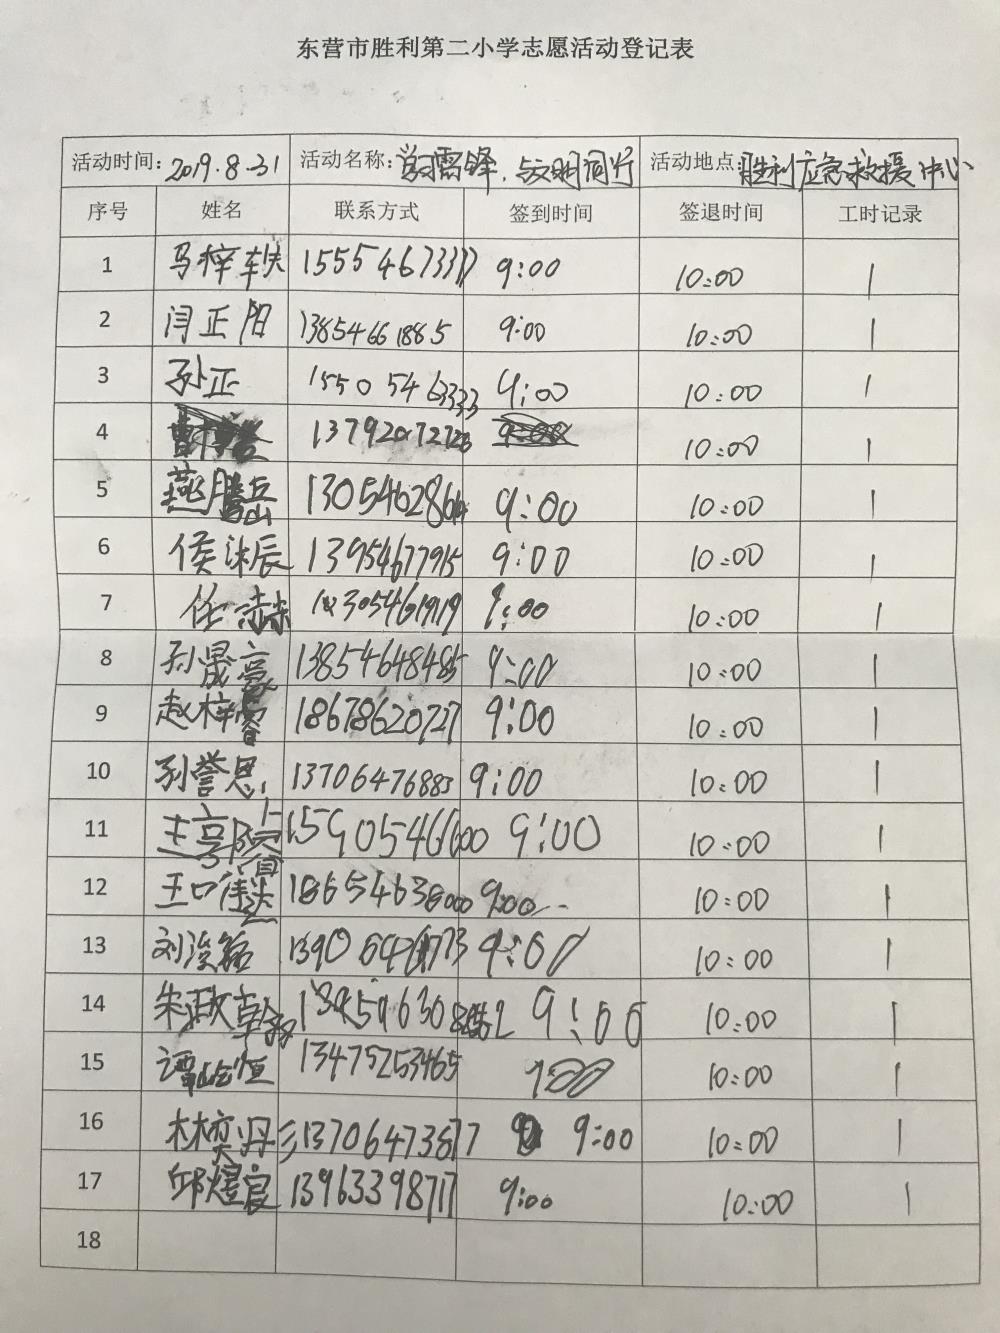 东营市胜利第二小学志愿活动登记表
活动时间: 2019.8.31 活动名称: 学习雷锋,与文明同行 活动地点: 胜利应急救援中心
序号 姓名 联系方式 签到时间 签退时间 工时记录
1 马梓轶 9:00 10:00 1
2 闫正阳 13854661885 9:00 10:00 1
3 孙正 15505463333 9:00 10:00 1
4 10:00 1
5 燕腾岳 9:00 10:00 1
6 侯沐辰 13954677915 9:00 10:00 1
7 任 9:00 10:00 1
8 孙晟豪 13854648485 9:00 10:00 1
9 赵梓睿 18678620727 9:00 10:00 1
10 孙誉思 13706476883 9:00 10:00 1
11 9:00 10:00 1
12 18654638000 9:00 10:00 1
13 刘浚铭 9:00 10:00 1
14 朱政 9:00 10:00 1
15 谭 恒 13475253465 10:00 1
16 13706473677 9:00 10:00 1
17 邱煜宸 13963398717 9:00 10:00 1
18